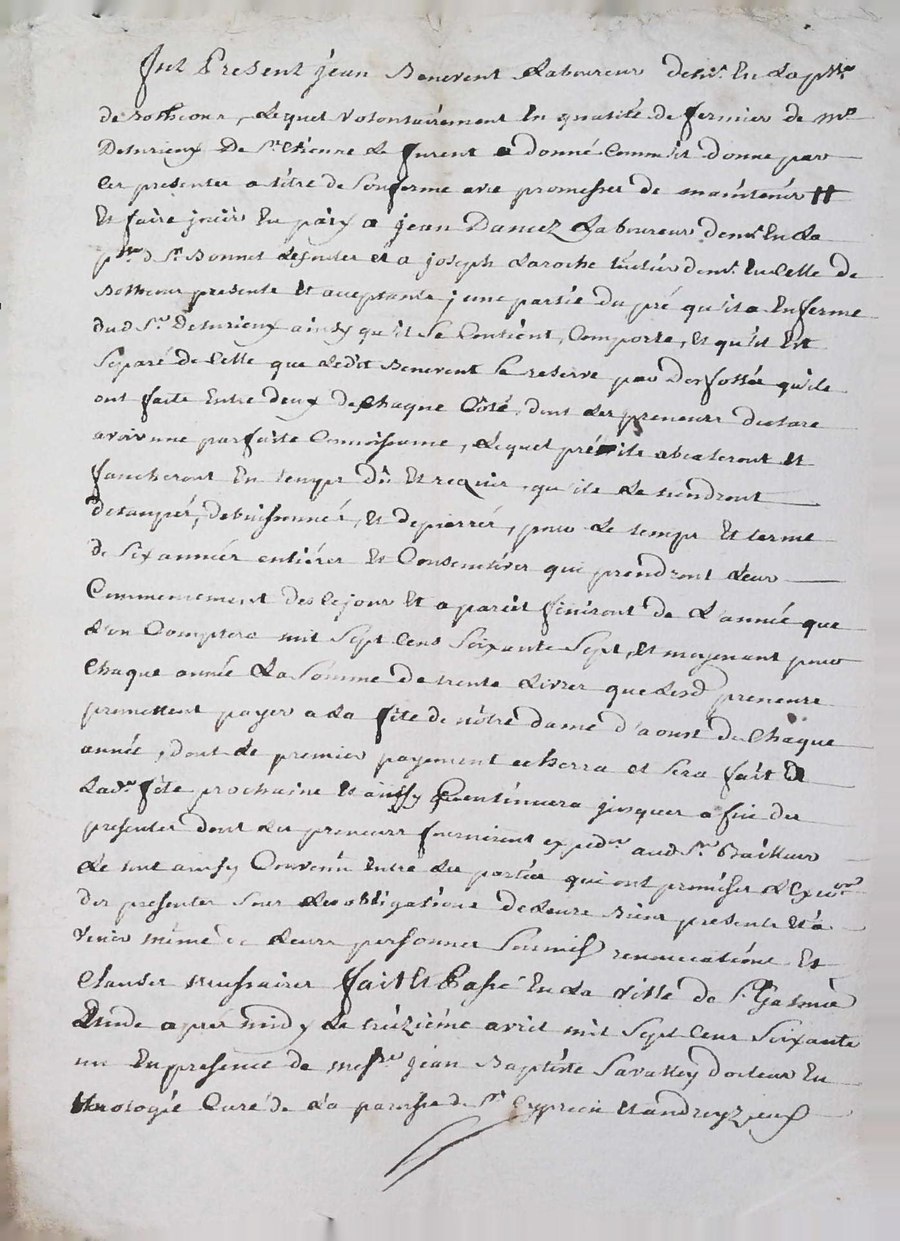 fut Present jean Benevent Laboureur dem.t En La p.sse
de Botheour, Lequel volontairement En qualité de fermier de m.r
Desurieux De S.t Etienne Le furent a donné Comm'il donne par
Ces presentes a titre de Sousferme avec promesses de maintenir
Et faire jouir En paix a jean Dancez Laboureur dem.t En La
p.sse d S.t Bonnet Les oules et a joseph Laroche dem.t En Celle de
Botheour presents Et acceptants, une partie du pré qu'il a En ferme
dud S.r Desurieux ainsy qu'il Se Contient, Comporte, Et qu'il Est
Separé de Celle que Ledit Benevent Se reserve par Des fossés qu'ils
ont faits Entre deux de Chaque Côté, dont Les preneurs declare
avoir une parfaite Connoissance, Lequel pré ils abealeront Et
faucheront En temps Dû Et requis, qu'ils Le tiendront
detaupés, debuissonnés, Et depierrés, pour Le temps Et terme
de Six années entiéres Et Consecutives qui prendront Leur
Commencement des Ce jour Et a pareil finiront de L'année que
L'on Comptera mil Sept Cens Soixante Sept, Et moyenant pour
Chaque année La Somme de trente Livres que Lesd preneurs
promettent payer a La fête de nôtre dame d'aoust de Chaque
année, dont Le premier payement echerra et Sera fait a
Lad.te fête prochaine Et ainsy Continuera jusques a fin des
presentes dont Les preneurs fourniront exped.on aud S.r Bailleur
Le tout ainsy Convenu Entre Les parties qui ont promises L'Exec.on
Des presentes Sous Les obligations de Leurs Biens presents Et a
venir même de Leurs personnes Soumiss renonciations Et
Clauses necessaires fait Et Passé En La ville de S.t Galmier
Etude aprés midy Le treiziéme avril mil Sept Cens Soixante
un En presence de mess.re jean Baptiste Savalley docteur En
theologie Curé de La paroisse de S.t Cyprien Et andrezieux